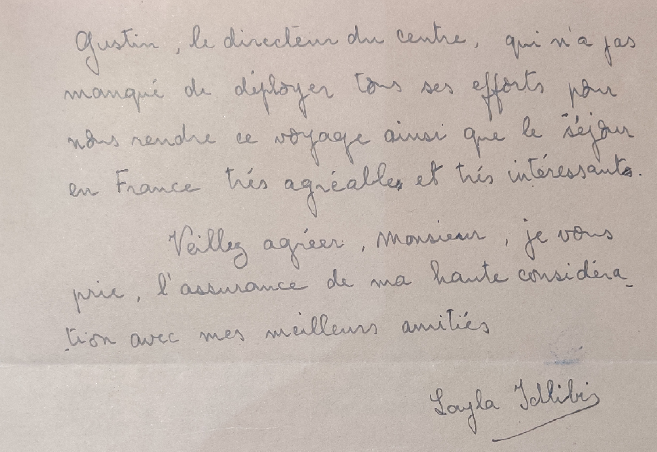 Gustin, le directeur du centre, qui n'a pas
manqué de déployer tous ses efforts pour
nous rendre ce voyage ainsi que le séjour
en France trés agréables et trés intéressants.
Veillez agréer, Monsieur, je vous
prie, l'assurance de ma haute considéra_
_tion avec mes meilleurs amitiés
Layla Idlibi